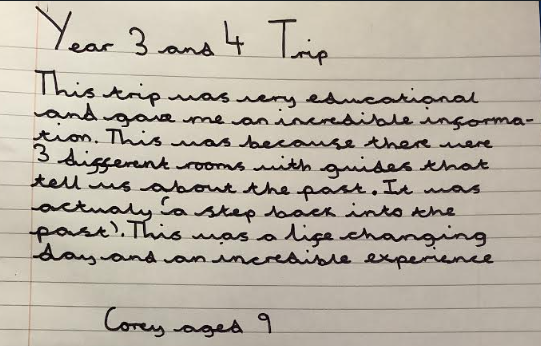 Year 3 and 4 Trip
This trip was very educational
and gave me an incredible informa-
tion. This was because there were
3 different rooms with guides that
tell us about the past. It was
actualy 'a step back into the
past'. This was a life changing
day and an incredible experience
Corey aged 9